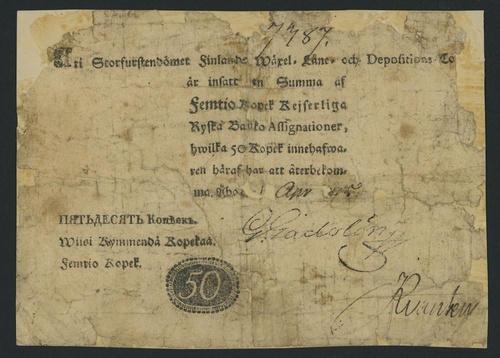 7787.
Uti Storfurstendömet Finlands Wäxel- Låne- och Depositions-Co
är insatt en Summa af
Femtio Kopek Kejserliga
Ryska Banko Assignationer,
hwilka 50 Kopek innehafwa-
ren häraf har att återbekom-
ma. Åbo Apr
ПЯТЬДЕСЯТЪ Копѣекъ.
Wiisi Kymmendä Kopekaa.
Femtio Kopek.
50